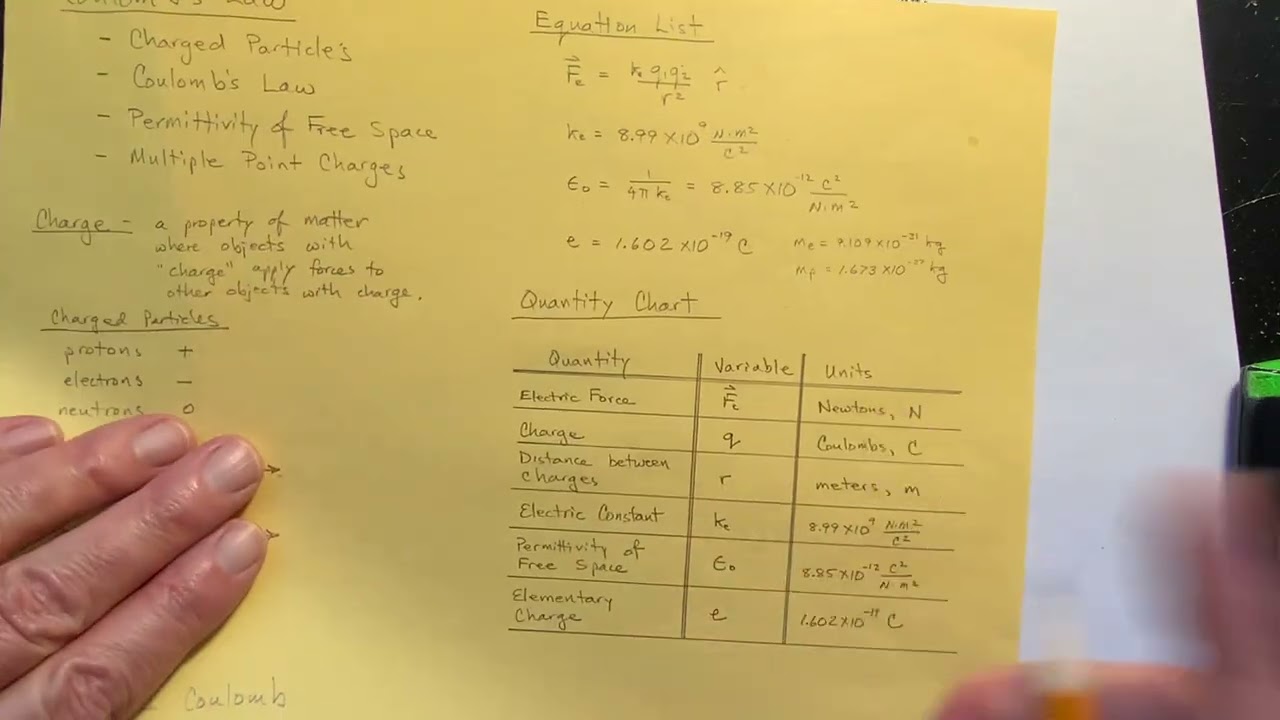 Coulomb's Law
- Charged Particle's
- Coulomb's Law
- Permittivity of Free Space
- Multiple Point Charges
Charge - a property of matter
where objects with
"charge" apply forces to
other objects with charge.
Charged Particles
protons +
electrons -
neutrons 0
Coulomb
Equation List
F⃗e = ke q1q2 / r² r̂
ke = 8.99 X10⁹ N·m² / C²
ϵ0 = 1 / 4π ke = 8.85 X10⁻¹² C² / N·m²
e = 1.602 X10⁻¹⁹ C
me = 9.109 X10⁻³¹ kg
mp = 1.673 X10⁻²⁷ kg
Quantity Chart
Quantity Variable Units
Electric Force F⃗e Newtons, N
Charge q Coulombs, C
Distance between
Charges r meters, m
Electric Constant ke 8.99 X10⁹ N·m² / C²
Permittivity of
Free Space ϵ0 8.85 X10⁻¹² C² / N·m²
Elementary
Charge e 1.602 X10⁻¹⁹ C